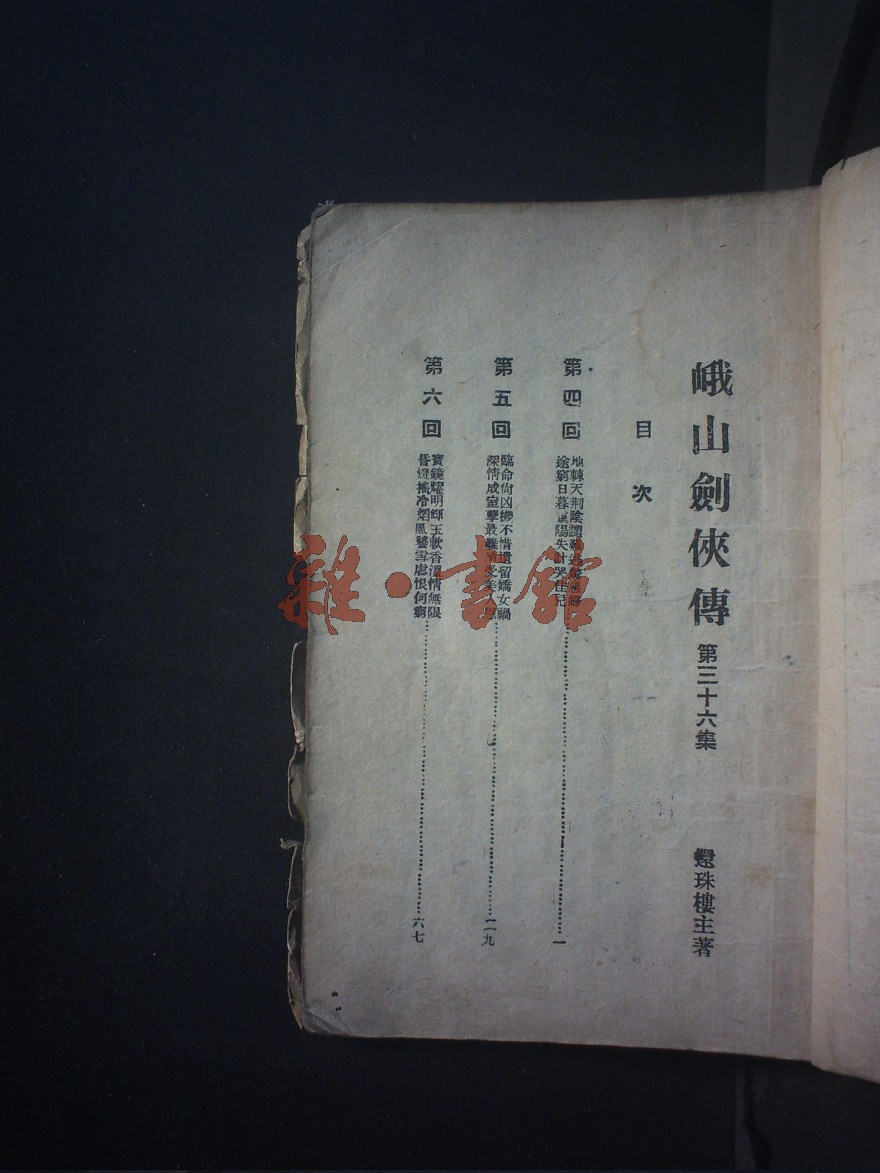 峨山劍俠傳 第三十六集 還珠樓主著
目次
第四回
地棘天荆陰謂
途窮日暮重陽失計哭佳兒
一
第五回
臨命尚凶機不惜遺留嬌女禍
深情成室孽最難
二九
第六回
寶鏡耀明輝玉軟香溫情無限
昏燈搖冷焰風饕雪虐恨何窮
六七
雜·書館